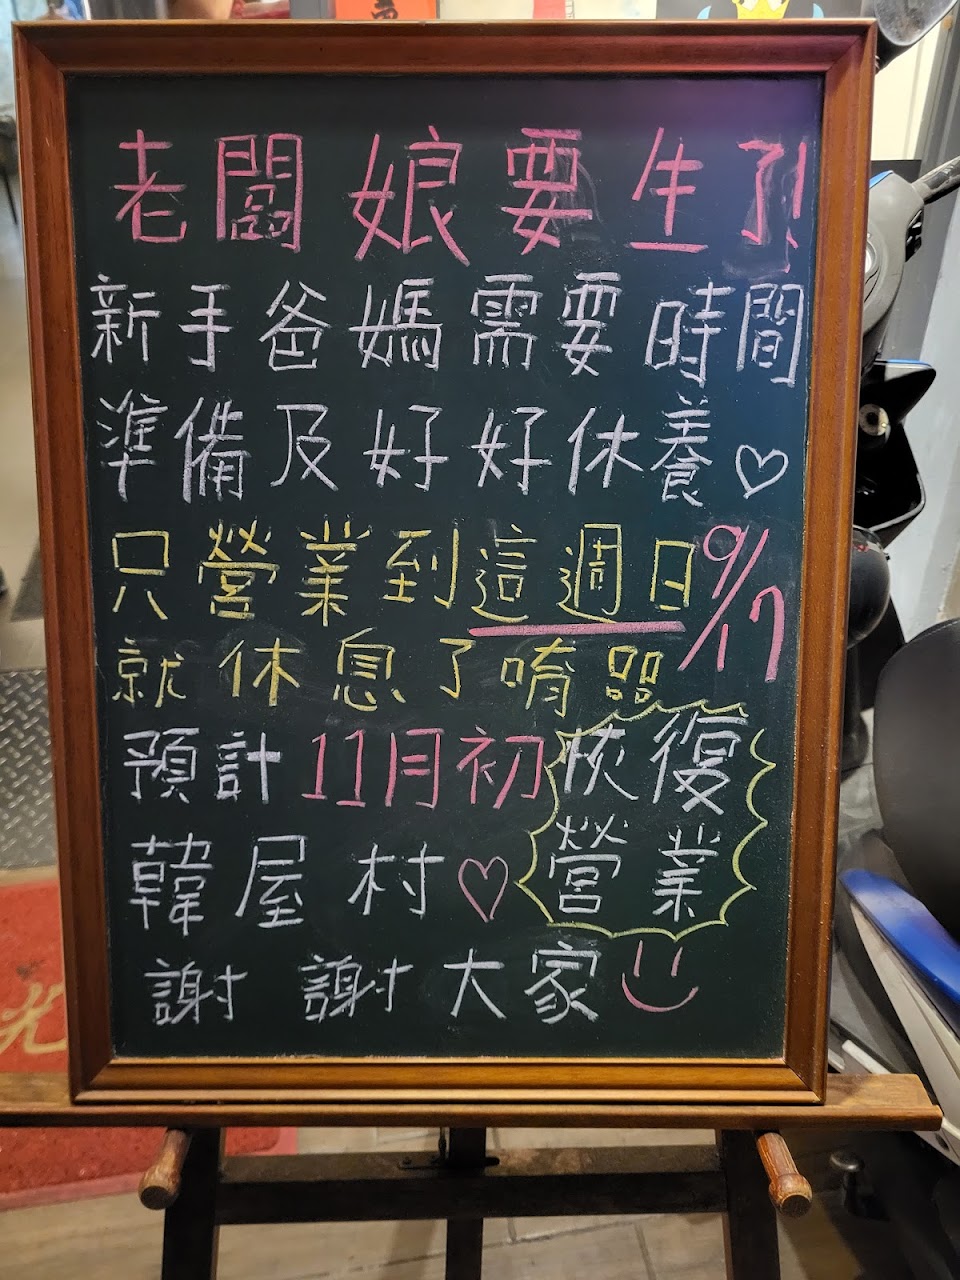 老闆娘要生了!
新手爸媽需要時間
準備及好好休養♡
只營業到這週日9/17
就休息了唷!!
預計11月初恢復
營業
韓屋村♡
謝謝大家